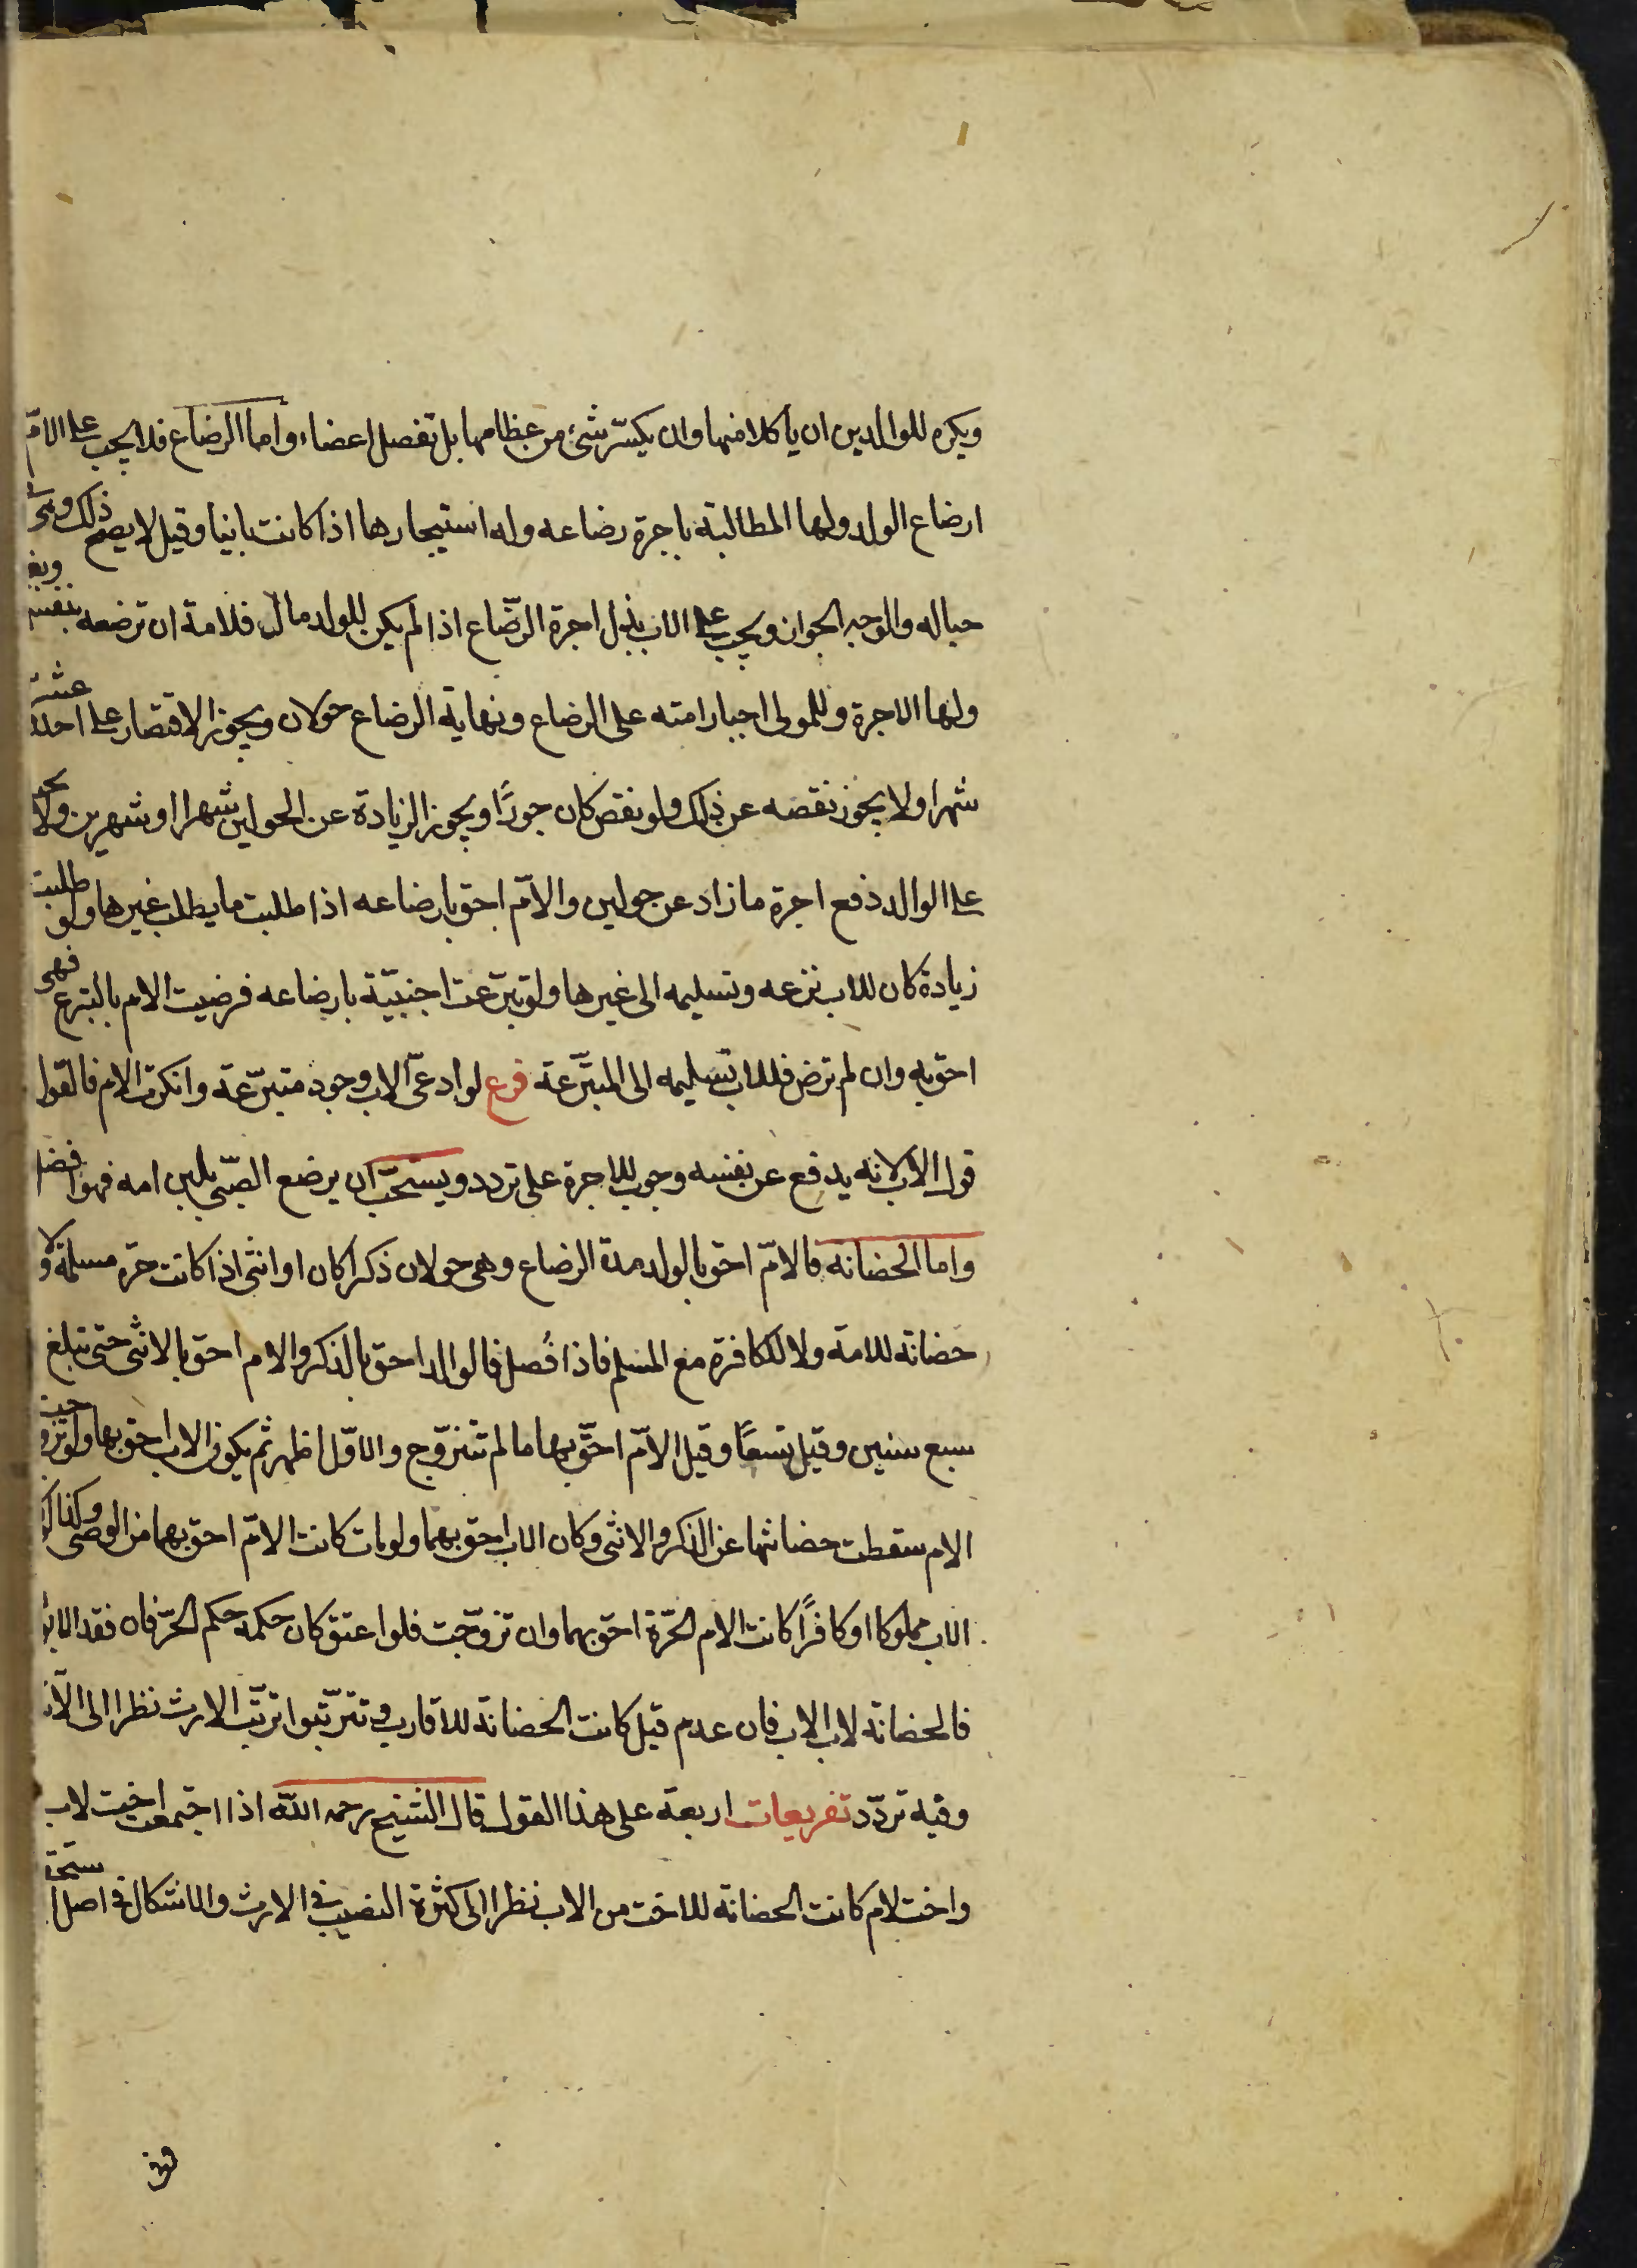 ويكره للوالدين ان ياكلا منها وان يكسّر شئ من عظامها بل تفصل اعضاء واما الرضاع فلا يجب على الامّ
ارضاع الولد ولها المطالبة باجرة رضاعه وله استيجارها اذا كانت باينا وقيل لا يصح ذلك وهى
حباله والوجه الجواز ويجب على الاب بذل اجرة الرّضاع اذا لم يكن للولد مال فلامة ان ترضعه بنفسها
ولها الاجرة وللمولى اجبار امته على الرضاع ونهاية الرضاع حولان ويجوز الاقتصار على احد عشر
شهرا ولا يجوز نقصه عن ذلك ولو نقص كان جورًا ويجوز الزيادة عن الحولين شهرا او شهرين ولا
على الوالد دفع اجرة ما زاد عن حولين والامّ احق بارضاعه اذا طلبت ما يطلب غيرها ولو طلبت
زيادة كان للاب نزعه وتسليمه الى غيرها ولو تبرّعت اجنبيّة بارضاعه فرضيت الام بالتبرع فهى
احق به وان لم ترض فللاب تسليمه الى المتبرّعة فرع لو ادعى الاب وجود متبرّعة وانكرت الام فالقول
قول الاب لانه يدفع عن نفسه وجوب الاجرة على تردد ويستحبّ ان يرضع الصّبي بلبن امه فهو افضل
واما الحضانه فالامّ احق بالولد مدة الرضاع وهى حولان ذكرا كان او انثى اذا كانت حرّه مسلمة ولا
حضانة للامة ولا للكافرة مع المسلم فاذا فُصل فالوالد احق بالذكر والام احق بالانثى حتى تبلغ
سبع سنين وقيل تسعًا وقيل الامّ احقّ بها ما لم تتزوّج والاوّل اظهر ثم يكون الاب احق بها ولو تزوجت
الام سقطت حضانتها عن الذكر والانثى وكان الاب احق بهما ولو مات كانت الامّ احق بهما من الوصى وكذا لو
الاب مملوكا او كافرًا كانت الام الحرّة احق بهما وان تزوّجت فلو اعتق كان حكمه حكم الحرّ فان فقد الابوا
فالحضانة لاب الاب فان عدم قيل كانت الحضانة للاقارب وتترتّبوا ترتّب الارث نظرا الى الآية
وفيه تردّد تفريعات اربعة على هذا القول قال الشيخ رحمه اللّه اذا اجتمعت اخت لاب
واخت لام كانت الحضانة للاخت من الاب نظرا الى كثرة النصيب فى الارث والاشكال فى اصل